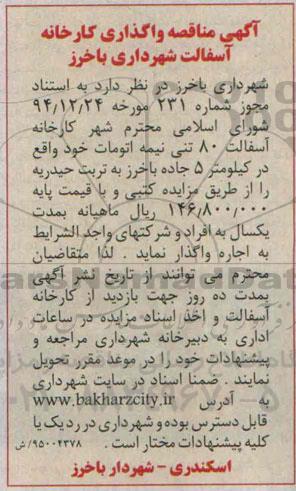 آگهی مناقصه واگذاری کارخانه
آسفالت شهرداری باخرز
شهرداری باخرز در نظر دارد به استناد
مجوز شماره ۲۳۱ مورخه ۹۴/۱۲/۲۴
شورای اسلامی محترم شهر کارخانه
آسفالت ۸۰ تنی نیمه اتومات خود واقع
در کیلومتر ۵ جاده باخرز به تربت حیدریه
را از طریق مزایده کتبی و با قیمت پایه
۱۴۶٫۸۰۰٫۰۰۰ ریال ماهیانه بمدت
یکسال به افراد و شرکتهای واجد الشرایط
به اجاره واگذار نماید . لذا متقاضیان
محترم می توانند از تاریخ نشر آگهی
بمدت ده روز جهت بازدید از کارخانه
آسفالت و اخذ اسناد مزایده در ساعات
اداری به دبیرخانه شهرداری مراجعه و
پیشنهادات خود را در موعد مقرر تحویل
نمایند . ضمنا اسناد در سایت شهرداری
به آدرس www.bakharzcity.ir
قابل دسترس بوده و شهرداری در رد یک یا
کلیه پیشنهادات مختار است . ۹۵۰۰۴۳۷۸/ش
اسکندری - شهردار باخرز